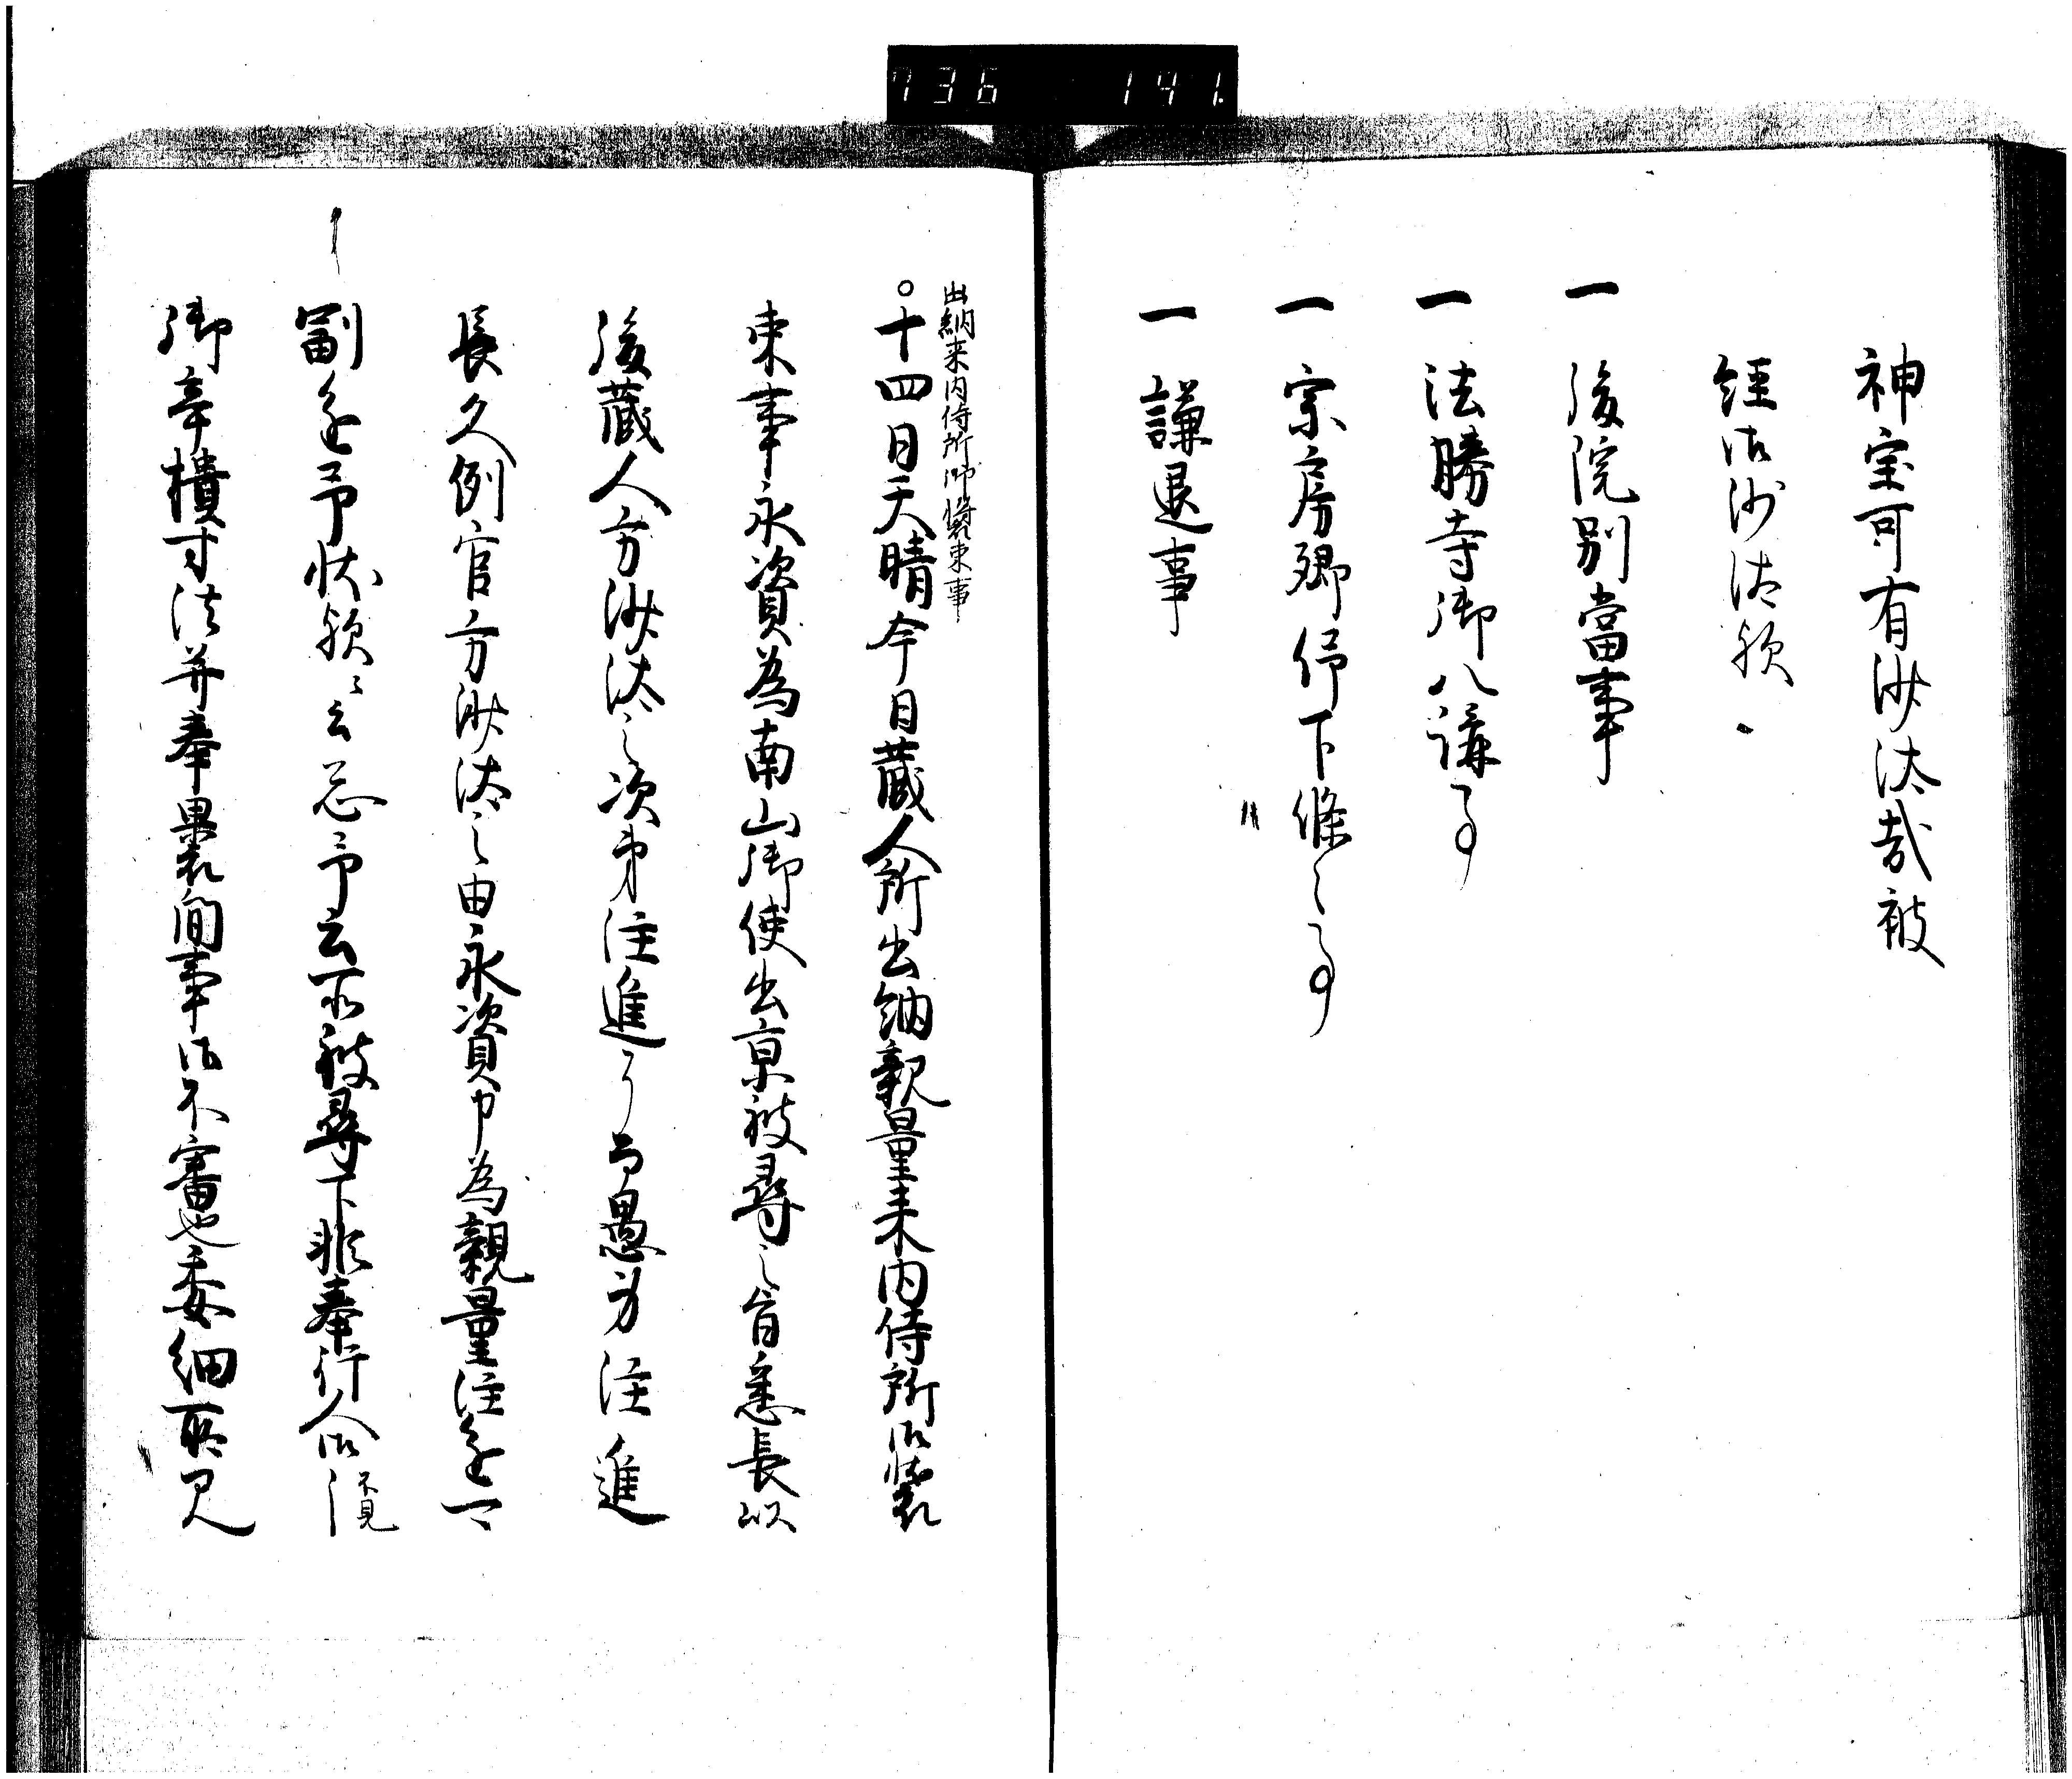 736 141.
神宝可有沙汰哉被
経御沙汰歟
一 後院別當事
一 法勝寺御八講事
一 宗房卿停下條々事
一 謙退事
出納来内侍所御装束事
○十四日天晴今日蔵人所出納親量来内侍所御装
束事永資為南山御使出京被尋之旨悉長以
後蔵人方沙汰之次第注進了而愚身注進
長久例官方沙汰之由永資申為親量注進一
副進予状歟云々忽予云不被尋下非奉行人
御辛樻寸法并奉裹間事御不審也委細所見